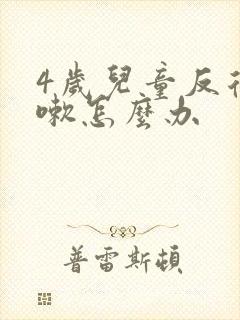 4歲兒童反復
嗽怎麼办
普雷斯頓